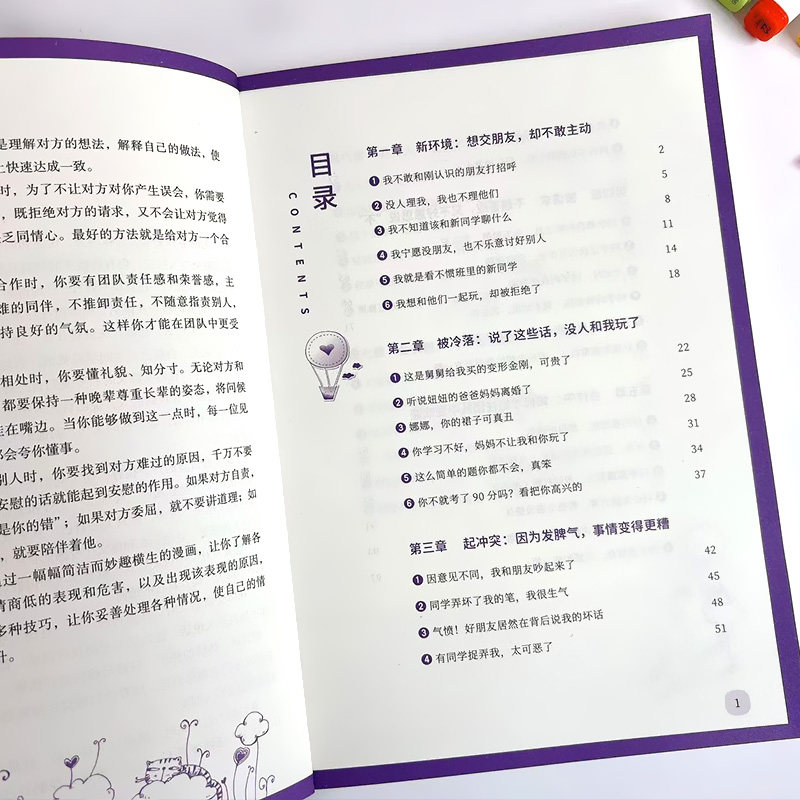 是理解对方的想法，解释自己的做法，使
上快速达成一致。
时，为了不让对方对你产生误会，你需要
，既拒绝对方的请求，又不会让对方觉得
乏同情心。最好的方法就是给对方一个合
合作时，你要有团队责任感和荣誉感，主
难的同伴，不推卸责任，不随意指责别人，
持良好的气氛。这样你才能在团队中更受
相处时，你要懂礼貌、知分寸。无论对方和
都要保持一种晚辈尊重长辈的姿态，将问候
在嘴边。当你能够做到这一点时，每一位见
都会夸你懂事。
别人时，你要找到对方难过的原因，千万不要
安慰的话就能起到安慰的作用。如果对方自责，
是你的错”；如果对方委屈，就不要讲道理；如
，就要陪伴着他。
过一幅幅简洁而妙趣横生的漫画，让你了解各
情商低的表现和危害，以及出现该表现的原因，
多种技巧，让你妥善处理各种情况，使自己的情
升。
目录
CONTENTS
第一章 新环境：想交朋友，却不敢主动
❶ 我不敢和刚认识的朋友打招呼 2
❷ 没人理我，我也不理他们 5
❸ 我不知道该和新同学聊什么 8
❹ 我宁愿没朋友，也不乐意讨好别人 11
❺ 我就是看不惯班里的新同学 14
❻ 我想和他们一起玩，却被拒绝了 18
第二章 被冷落：说了这些话，没人和我玩了
❶ 这是舅舅给我买的变形金刚，可贵了 22
❷ 听说妞妞的爸爸妈妈离婚了 25
❸ 娜娜，你的裙子可真丑 28
❹ 你学习不好，妈妈不让我和你玩了 31
❺ 这么简单的题你都不会，真笨 34
❻ 你不就考了 90 分吗？看把你高兴的 37
第三章 起冲突：因为发脾气，事情变得更糟
❶ 因意见不同，我和朋友吵起来了 42
❷ 同学弄坏了我的笔，我很生气 45
❸ 气愤！好朋友居然在背后说我的坏话 48
❹ 有同学捉弄我，太可恶了 51
1